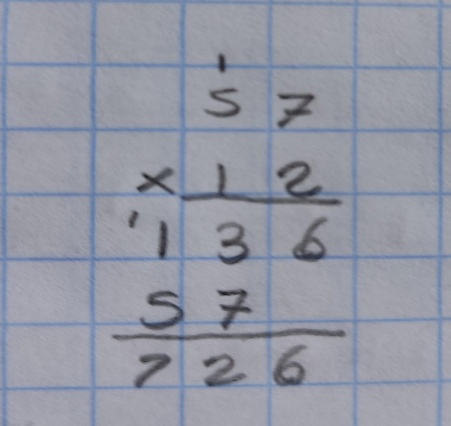 1
5 7
× 1 2
1 1 3 6
5 7
7 2 6